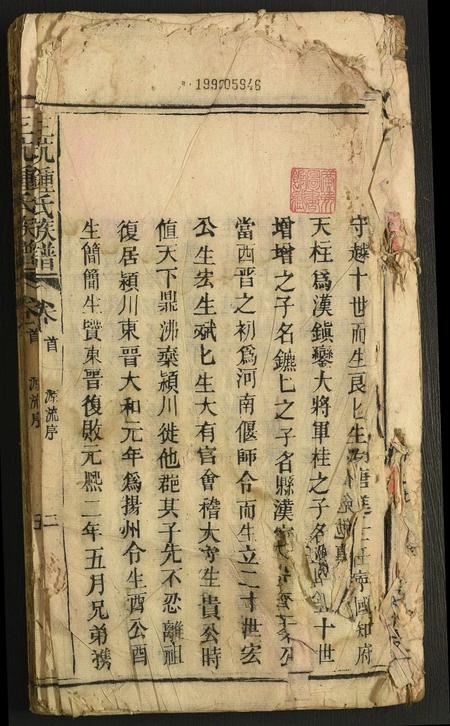 199705946
守越十世而生良匕生
天柱爲漢鎮蠻大將軍桂之子名 十世
增增之子名鑣匕之子名縣漢
當西晉之初爲河南偃師令而生立二十世宏
公生宏生斌匕生大有官會稽大守生貴公時
值天下鼎沸棄潁川徙他郡其子先不忍離祖
復居潁川東晉大和元年爲揚州令生酉公酉
生簡簡生賢東晉復敗元熙二年五月兄弟携
鍾氏族譜
卷首
源流序
二